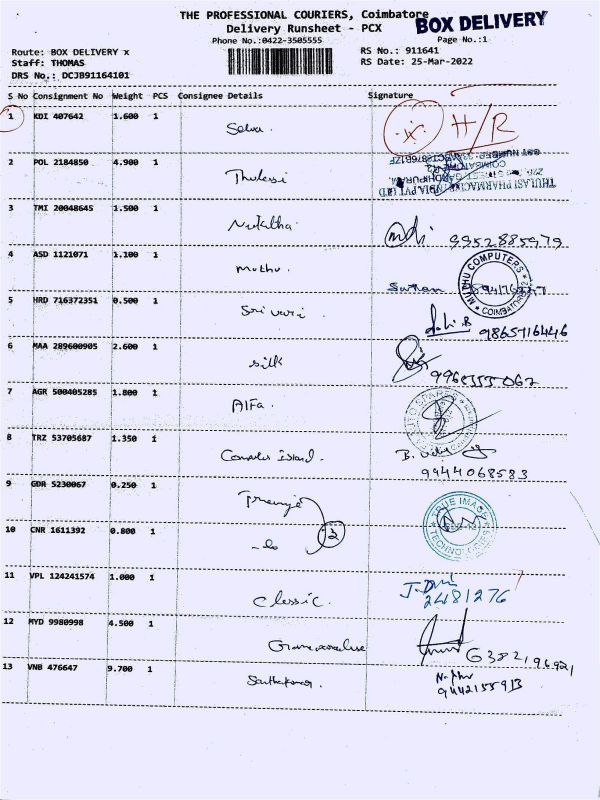 THE PROFESSIONAL COURIERS, Coimbatore
BOX DELIVERY
Delivery Runsheet - PCX
Page No.:1
Phone No.:0422-3505555
Route: BOX DELIVERY x
RS No.: 911641
Staff: THOMAS
RS Date: 25-Mar-2022
DRS No.: DCJB91164101
S No Consignment No Weight PCS Consignee Details Signature
1 KDI 407642 1.600 1
Selva. H/R
2 POL 2184850 4.900 1
Thulasi THULASI PHARMACIES INDIA PVT LTD
3 TMI 20048645 1.500 1
9952885979
4 ASD 1121071 1.100 1
Muthu. MUTHU COMPUTERS
COIMBATORE
5 HRD 716372351 0.500 1
Sri vari 9865716446
6 MAA 289600905 2.600 1
silk
7 AGR 500405285 1.800 1
Alfa. AUTO SPARES
8 TRZ 53705687 1.350 1
Computer island.
9944068583
9 GDR 5230067 0.250 1
TRUE IMAGE
TECHNOLOGIES
10 CNR 1611392 0.800 1
2
11 VPL 124241574 1.000 1
Classic. 2481276
12 MYD 9980998 4.500 1
6382196921
13 VNB 476647 9.700 1